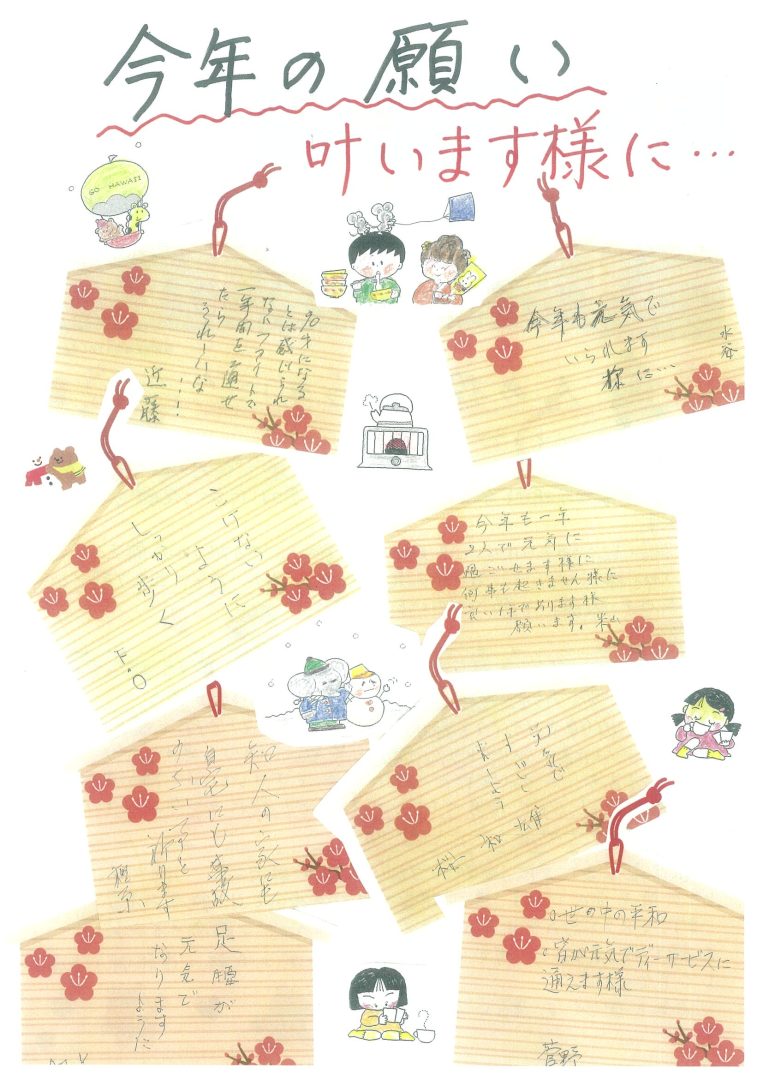 今年の願い
叶います様に…
GO HAWAII
90才になる
とは感じられ
ないファイトで
一年間を通せ
たら
うれしいな
近藤
今年も元気で
いられます
様に…
水谷
こけない
ように
しっかり
歩く
F.O
今年も一年
2人で元気に
過ごせます様に
何事も起きません様に
良い年であります様
願います。米山
元気で
すごし
ましょう
知人の家にも
自宅にも事故
のない
祈ります
足腰が
元気で
なります
ように
世の中の平和
皆が元気でディーサービスに
通えます様
菅野